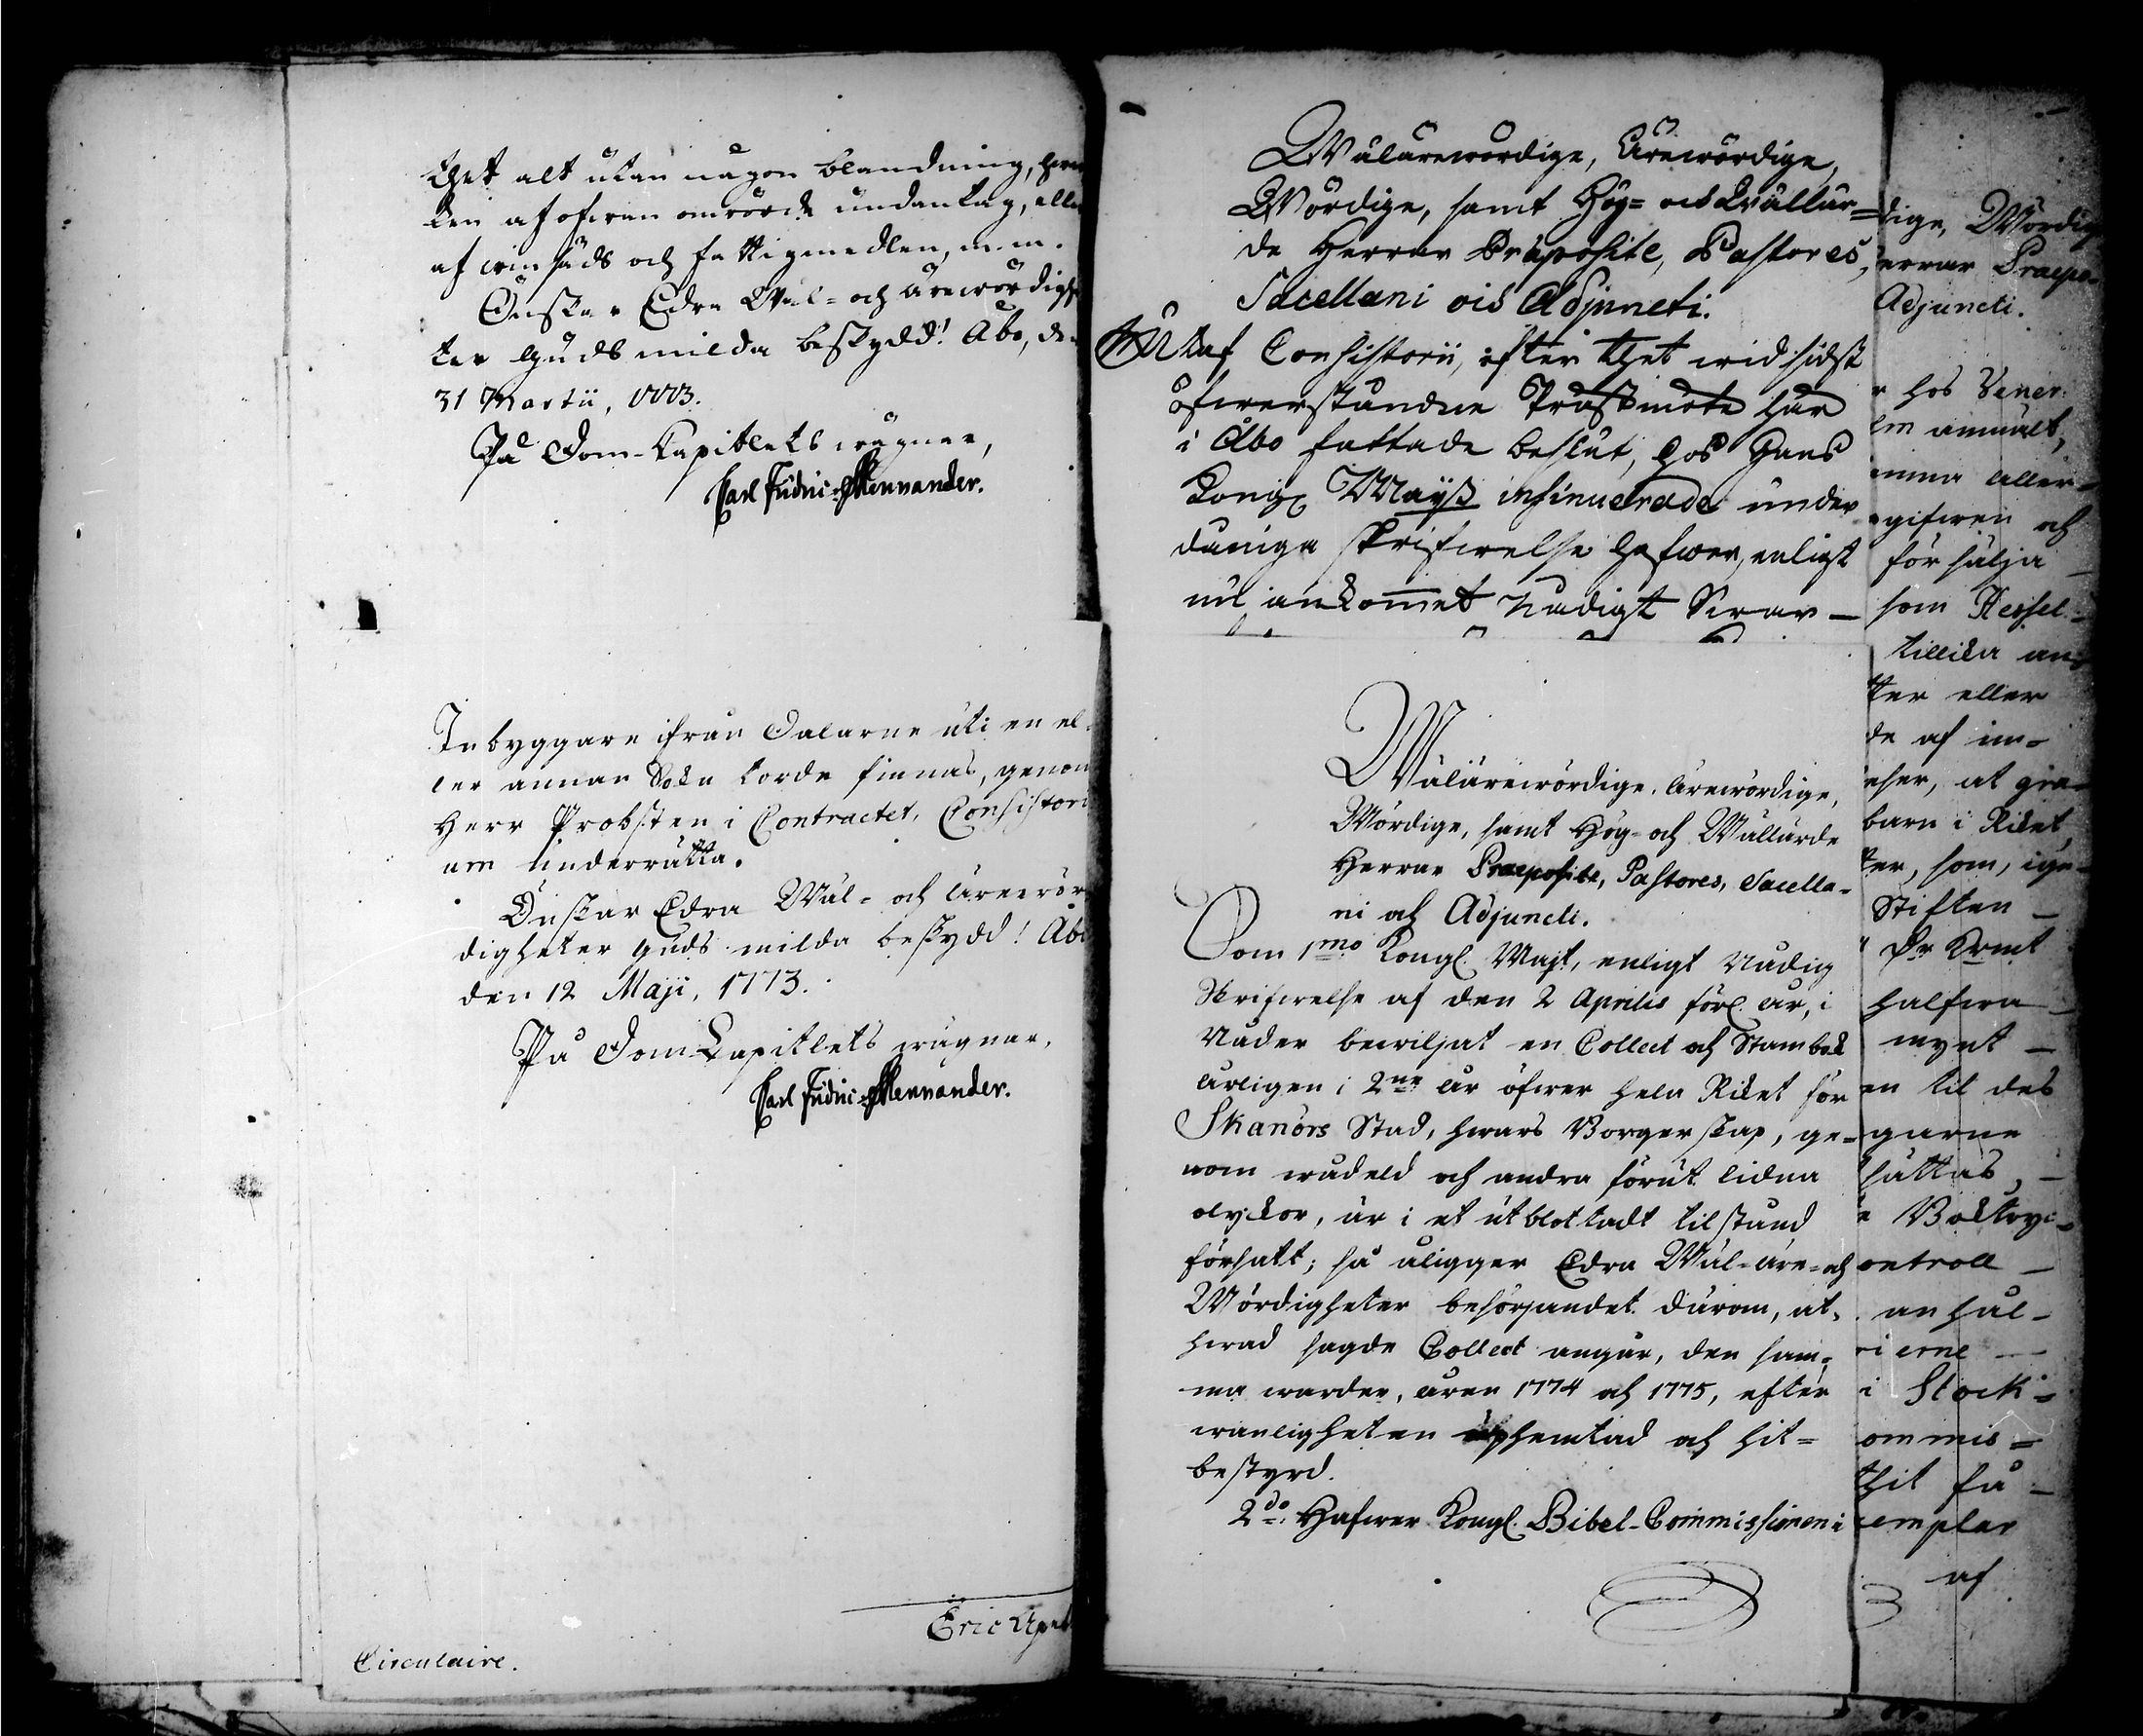 thet alt utan någon blandning,
len af ofwan omrörde undantag, elle
af winsäds och fattigmedlen, m.m.
Önskar Edra Wäl- och Ärewördighe
ter Guds milda beskydd! Åbo, den
31 Martii, 1773.
På Dom-Capitlets wägnar,
Carl Fridric Mennander.
Inbyggare ifrån Dalarne uti en el-
ler annan Sokn torde finnas, genom
Herr Probsten i Contractet, Consistori
um underrätta.
Önskar Edra Wäl- och Ärewör
digheter Guds milda beskydd! Åbo
den 12 Maji, 1773.
På Dom-Capitlets wägnar,
Carl Fridric Mennander.
Eric
Circulaire.
Wälärewördige, Ärewördige,
Wördige, samt Hög- och Wällär-
de Herrar Præposite, Pastores,
Sacellani och Adjuncti.
Utaf Consistorii, efter thet wid sidst
öfwerståndne Prästmöte här
i Åbo fattade beslut, hos Hans
Kongl. Maijt insinuerade under
dåniga skrifwelse hafwer, enligt
nu ankommet Nådigt Swar—
Wälärewördige, Ärewördige,
Wördige, samt Hög- och Wällärde
Herrar Præposite, Pastores, Sacella-
ni och Adjuncti.
Som 1mo Kongl. Majt, enligt Nådig
Skrifwelse af den 2 Aprilis förl. år, i
Nåder bewiljat en Collect och Stambok
årligen i 2ne år öfwer hela Riket för
Skanörs Stad, hwars Borgerskap, ge-
nom wådeld och andra förut lidna
olyckor, är i et utblottadt tilstånd
försatt; så åligger Edra Wäl-äre- och
Wördigheter besörjandet därom, at,
hwad sagde Collect angår, den sam-
ma warder, åren 1774 och 1775, efter
wanligheten uphemtad och hit-
bestyrd.
2do. Hafwer Kongl. Bibel-Commissionen i
dige, Wördig
errar Præpo-
Adjuncti.
r hos Vener.
lm anmält,
imma aller-
gifwen och
försälja —
som Hessel-
tillika an-
ter eller
de af in-
eser, at gia-
barn i Riket
ter, som, ige-
Stiften —
halfwa —
mynt —
en til des
garne
sättas, —
e Boktryc-
ontroll —
anhål-
ri erne —
i Stock-
ommis-
thit få-
emplar
af